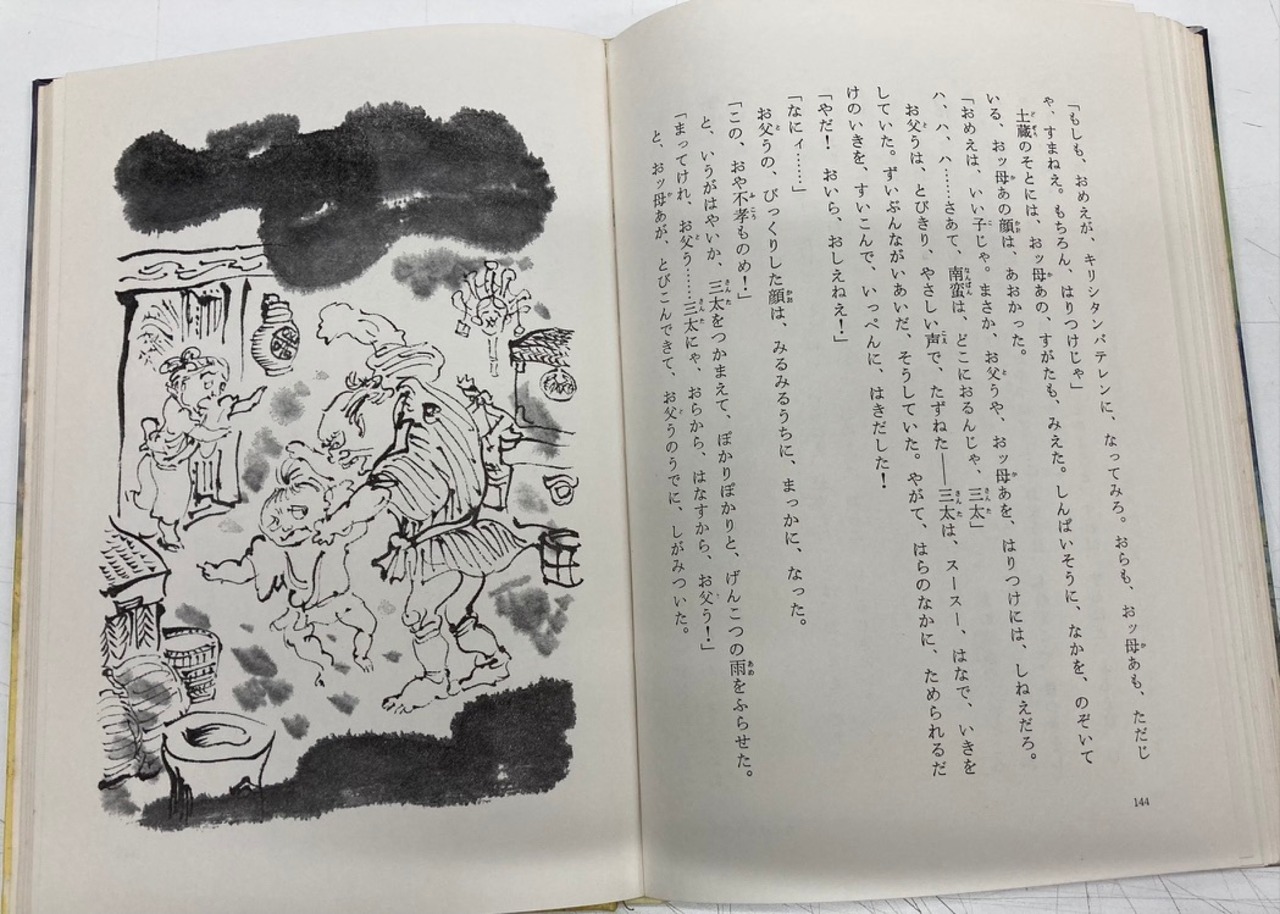 「もしも、おめえが、キリシタンバテレンに、なってみろ。おらも、おッ母あも、ただじ
ゃ、すまねえ。もちろん、はりつけじゃ」
土蔵のそとには、おッ母あの、すがたも、みえた。しんぱいそうに、なかを、のぞいて
いる、おッ母あの顔は、あおかった。
「おめえは、いい子じゃ。まさか、お父うや、おッ母あを、はりつけには、しねえだろ。
ハ、ハ、ハ……さあて、南蛮は、どこにおるんじゃ、三太」
お父うは、とびきり、やさしい声で、たずねた――三太は、スースー、はなで、いきを
していた。ずいぶんながいあいだ、そうしていた。やがて、はらのなかに、ためられるだ
けのいきを、すいこんで、いっぺんに、はきだした！
「やだ！　おいら、おしえねえ！」
「なにィ……」
お父うの、びっくりした顔は、みるみるうちに、まっかに、なった。
「この、おや不孝ものめ！」
と、いうがはやいか、三太をつかまえて、ぽかりぽかりと、げんこつの雨をふらせた。
「まってけれ、お父う……三太にゃ、おらから、はなすから、お父う！」
と、おッ母あが、とびこんできて、お父うのうでに、しがみついた。
144